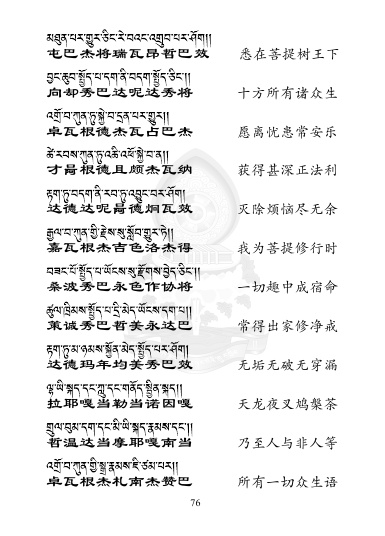 མཐུན་པར་གྱུར་ཅིང་རེ་བའང་འགྲུབ་པར་ཤོག།
屯巴杰将瑞瓦昂哲巴效 悉在菩提树王下
བྱང་ཆུབ་སྤྱོད་པ་དག་ནི་བདག་སྤྱོད་ཅིང་།།
向却秀巴达呢达秀将 十方所有诸众生
འགྲོ་བ་ཀུན་ཏུ་སྐྱེ་བ་དྲན་པར་གྱུར།།
卓瓦根德杰瓦占巴杰 愿离忧患常安乐
ཚེ་རབས་ཀུན་ཏུ་འཆི་འཕོ་སྐྱེ་བ་ན།།
才曷根德且颇杰瓦纳 获得甚深正法利
རྟག་ཏུ་བདག་ནི་རབ་ཏུ་འབྱུང་བར་ཤོག།
达德达呢曷德炯瓦效 灭除烦恼尽无余
རྒྱལ་བ་ཀུན་གྱི་རྗེས་སུ་སློབ་གྱུར་ཏེ།།
嘉瓦根杰吉色洛杰得 我为菩提修行时
བཟང་པོ་སྤྱོད་པ་ཡོངས་སུ་རྫོགས་བྱེད་ཅིང་།།
桑波秀巴永色作协将 一切趣中成宿命
ཚུལ་ཁྲིམས་སྤྱོད་པ་དྲི་མེད་ཡོངས་དག་པ།།
策诚秀巴哲美永达巴 常得出家修净戒
རྟག་ཏུ་མ་ཉམས་སྐྱོན་མེད་སྤྱོད་པར་ཤོག།
达德玛年均美秀巴效 无垢无破无穿漏
ལྷ་ཡི་སྐད་དང་ཀླུ་དང་གནོད་སྦྱིན་སྐད།།
拉耶嘎当勒当诺因嘎 天龙夜叉鸠槃茶
གྲུལ་བུམ་དག་དང་མི་ཡི་སྐད་རྣམས་དང་།།
哲温达当摩耶嘎南当 乃至人与非人等
འགྲོ་བ་ཀུན་གྱི་སྒྲ་རྣམས་ཇི་ཙམ་པར།།
卓瓦根杰札南杰赞巴 所有一切众生语
76